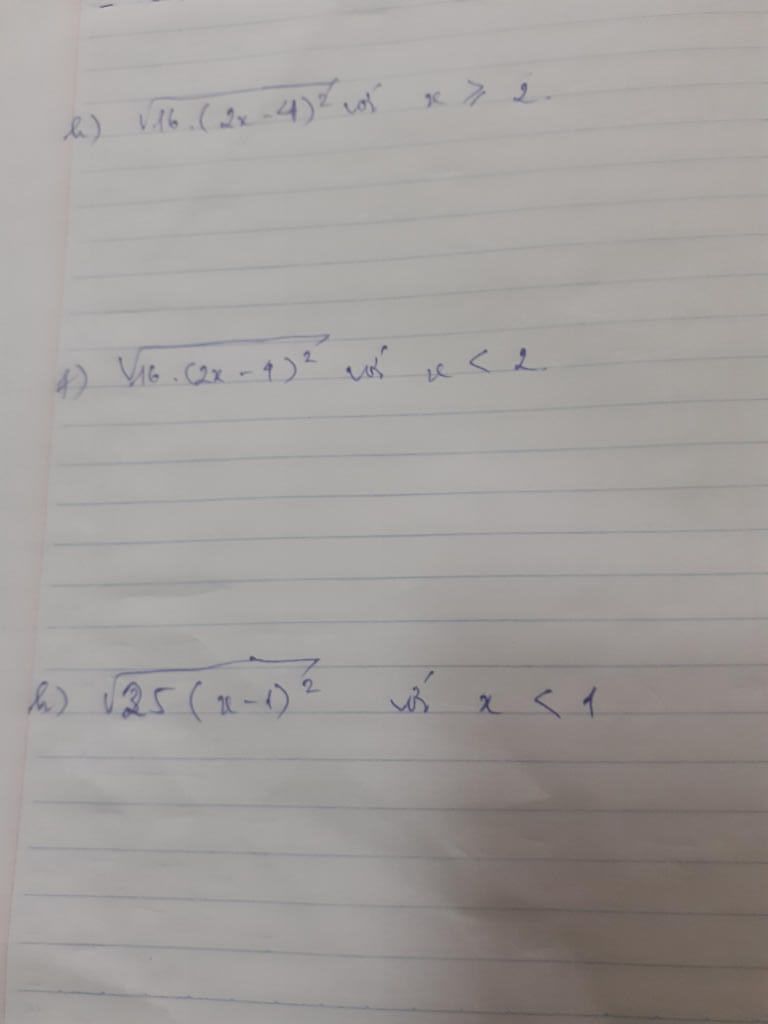 h) √16.(2x-4)² với x ⩾ 2.
f) √16.(2x-4)² với x < 2.
h) √25(x-1)² với x < 1